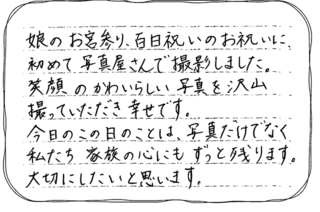 娘のお宮参り、百日祝いのお祝いに、
初めて写真屋さんで撮影しました。
笑顔のかわいらしい写真を沢山
撮っていただき幸せです。
今日のこの日のことは、写真だけでなく
私たち家族の心にもずっと残ります。
大切にしたいと思います。